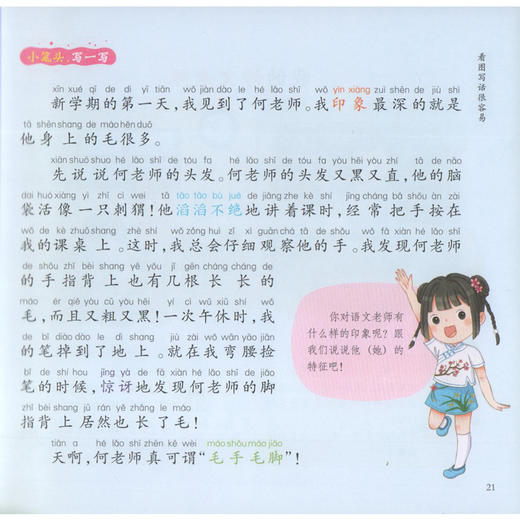 小笔头,写一写
看图写话很容易
xīn xué qī de dì yī tiān wǒ jiàn dào le hé lǎo shī wǒ yìn xiàng zuì shēn de jiù shì
新学期的第一天，我见到了何老师。我印象最深的就是
tā shēn shang de máo hěn duō
他身上的毛很多。
xiān shuō shuo hé lǎo shī de tóu fa hé lǎo shī de tóu fa yòu hēi yòu zhí tā de nǎo
先说说何老师的头发。何老师的头发又黑又直，他的脑
dai huó xiàng yì zhī cì wei tā tāo tāo bù jué de jiǎng zhe kè shí jīng cháng bǎ shǒu àn zài
袋活像一只刺猬！他滔滔不绝地讲着课时，经常把手按在
wǒ de kè zhuō shang zhè shí wǒ zǒng huì zǐ xì guān chá tā de shǒu wǒ fā xiàn hé lǎo shī
我的课桌上。这时，我总会仔细观察他的手。我发现何老师
de shǒu zhǐ bèi shang yě yǒu jǐ gēn cháng cháng de
的手指背上也有几根长长的
máo ér qiě yòu cū yòu hēi yí cì wǔ xiū shí wǒ
毛，而且又粗又黑！一次午休时，我
de bǐ diào dào le dì shang jiù zài wǒ wān yāo jiǎn
的笔掉到了地上。就在我弯腰捡
bǐ de shí hou jīng yà de fā xiàn hé lǎo shī de jiǎo
笔的时候，惊讶地发现何老师的脚
zhǐ bèi shang jū rán yě zhǎng le máo
指背上居然也长了毛！
tiān a hé lǎo shī zhēn kě wèi máo shǒu máo jiǎo
天啊，何老师真可谓“毛手毛脚”！
你对语文老师有
什么样的印象呢？跟
我们说说他（她）的
特征吧！
21